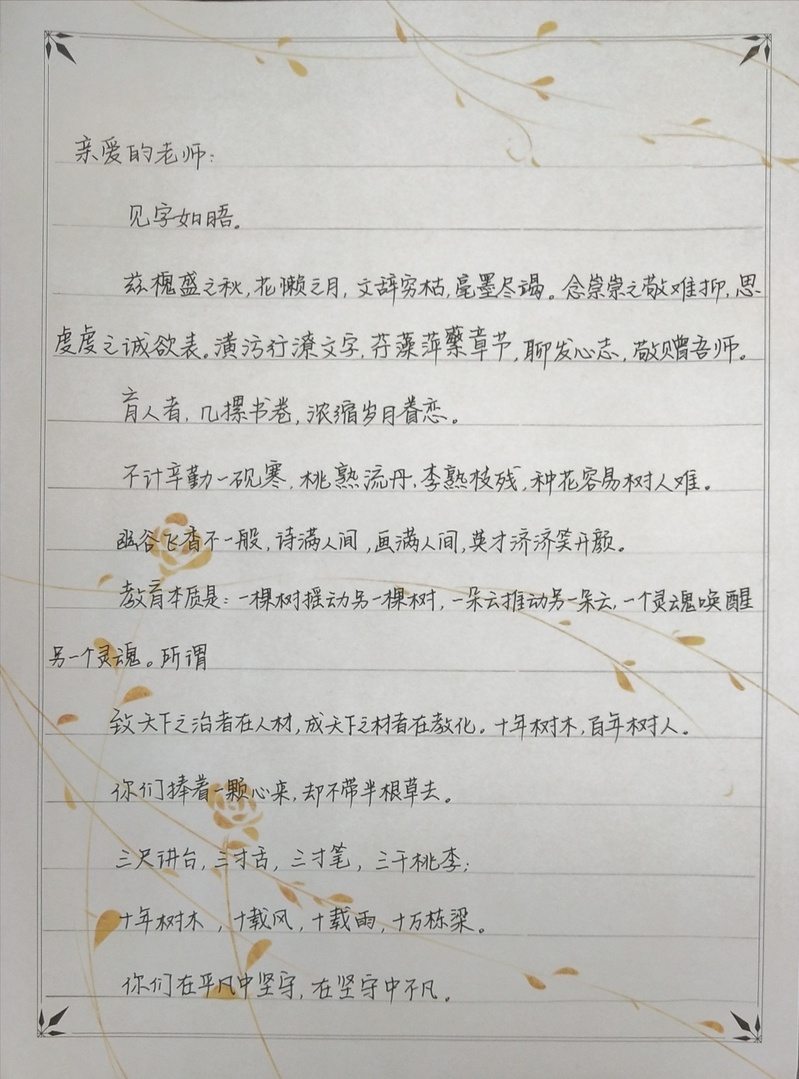 亲爱的老师：
见字如晤。
兹槐盛之秋，花懒之月，文辞穷枯，毫墨尽竭。念崇崇之敬难抑，思
虔虔之诚欲表。潢污行潦文字，荇藻萍蘩章节，聊发心志，敬赠吾师。
育人者，几摞书卷，浓缩岁月眷恋。
不计辛勤一砚寒，桃熟流丹，李熟枝残，种花容易树人难。
幽谷飞香不一般，诗满人间，画满人间，英才济济笑开颜。
教育本质是：一棵树摇动另一棵树，一朵云推动另一朵云，一个灵魂唤醒
另一个灵魂。所谓
致天下之治者在人材，成天下之材者在教化。十年树木，百年树人。
你们捧着一颗心来，却不带半根草去。
三尺讲台，三寸舌，三寸笔，三千桃李；
十年树木，十载风，十载雨，十万栋梁。
你们在平凡中坚守，在坚守中不凡。